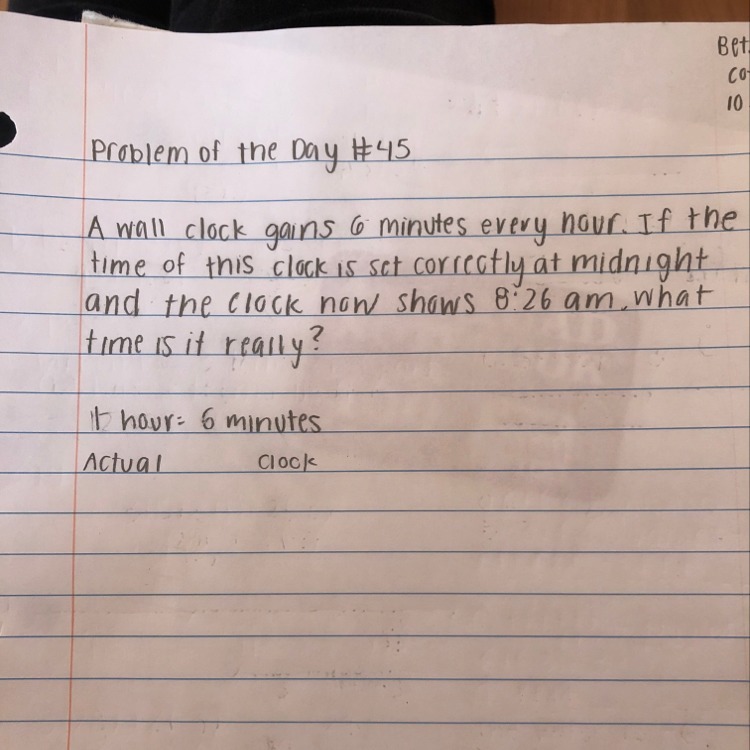 Bet
co
10
Problem of the Day #45
A wall clock gains 6 minutes every hour. If the
time of this clock is set correctly at midnight
and the clock now shows 8:26 am, what
time is it really?
1 hour = 6 minutes
Actual Clock